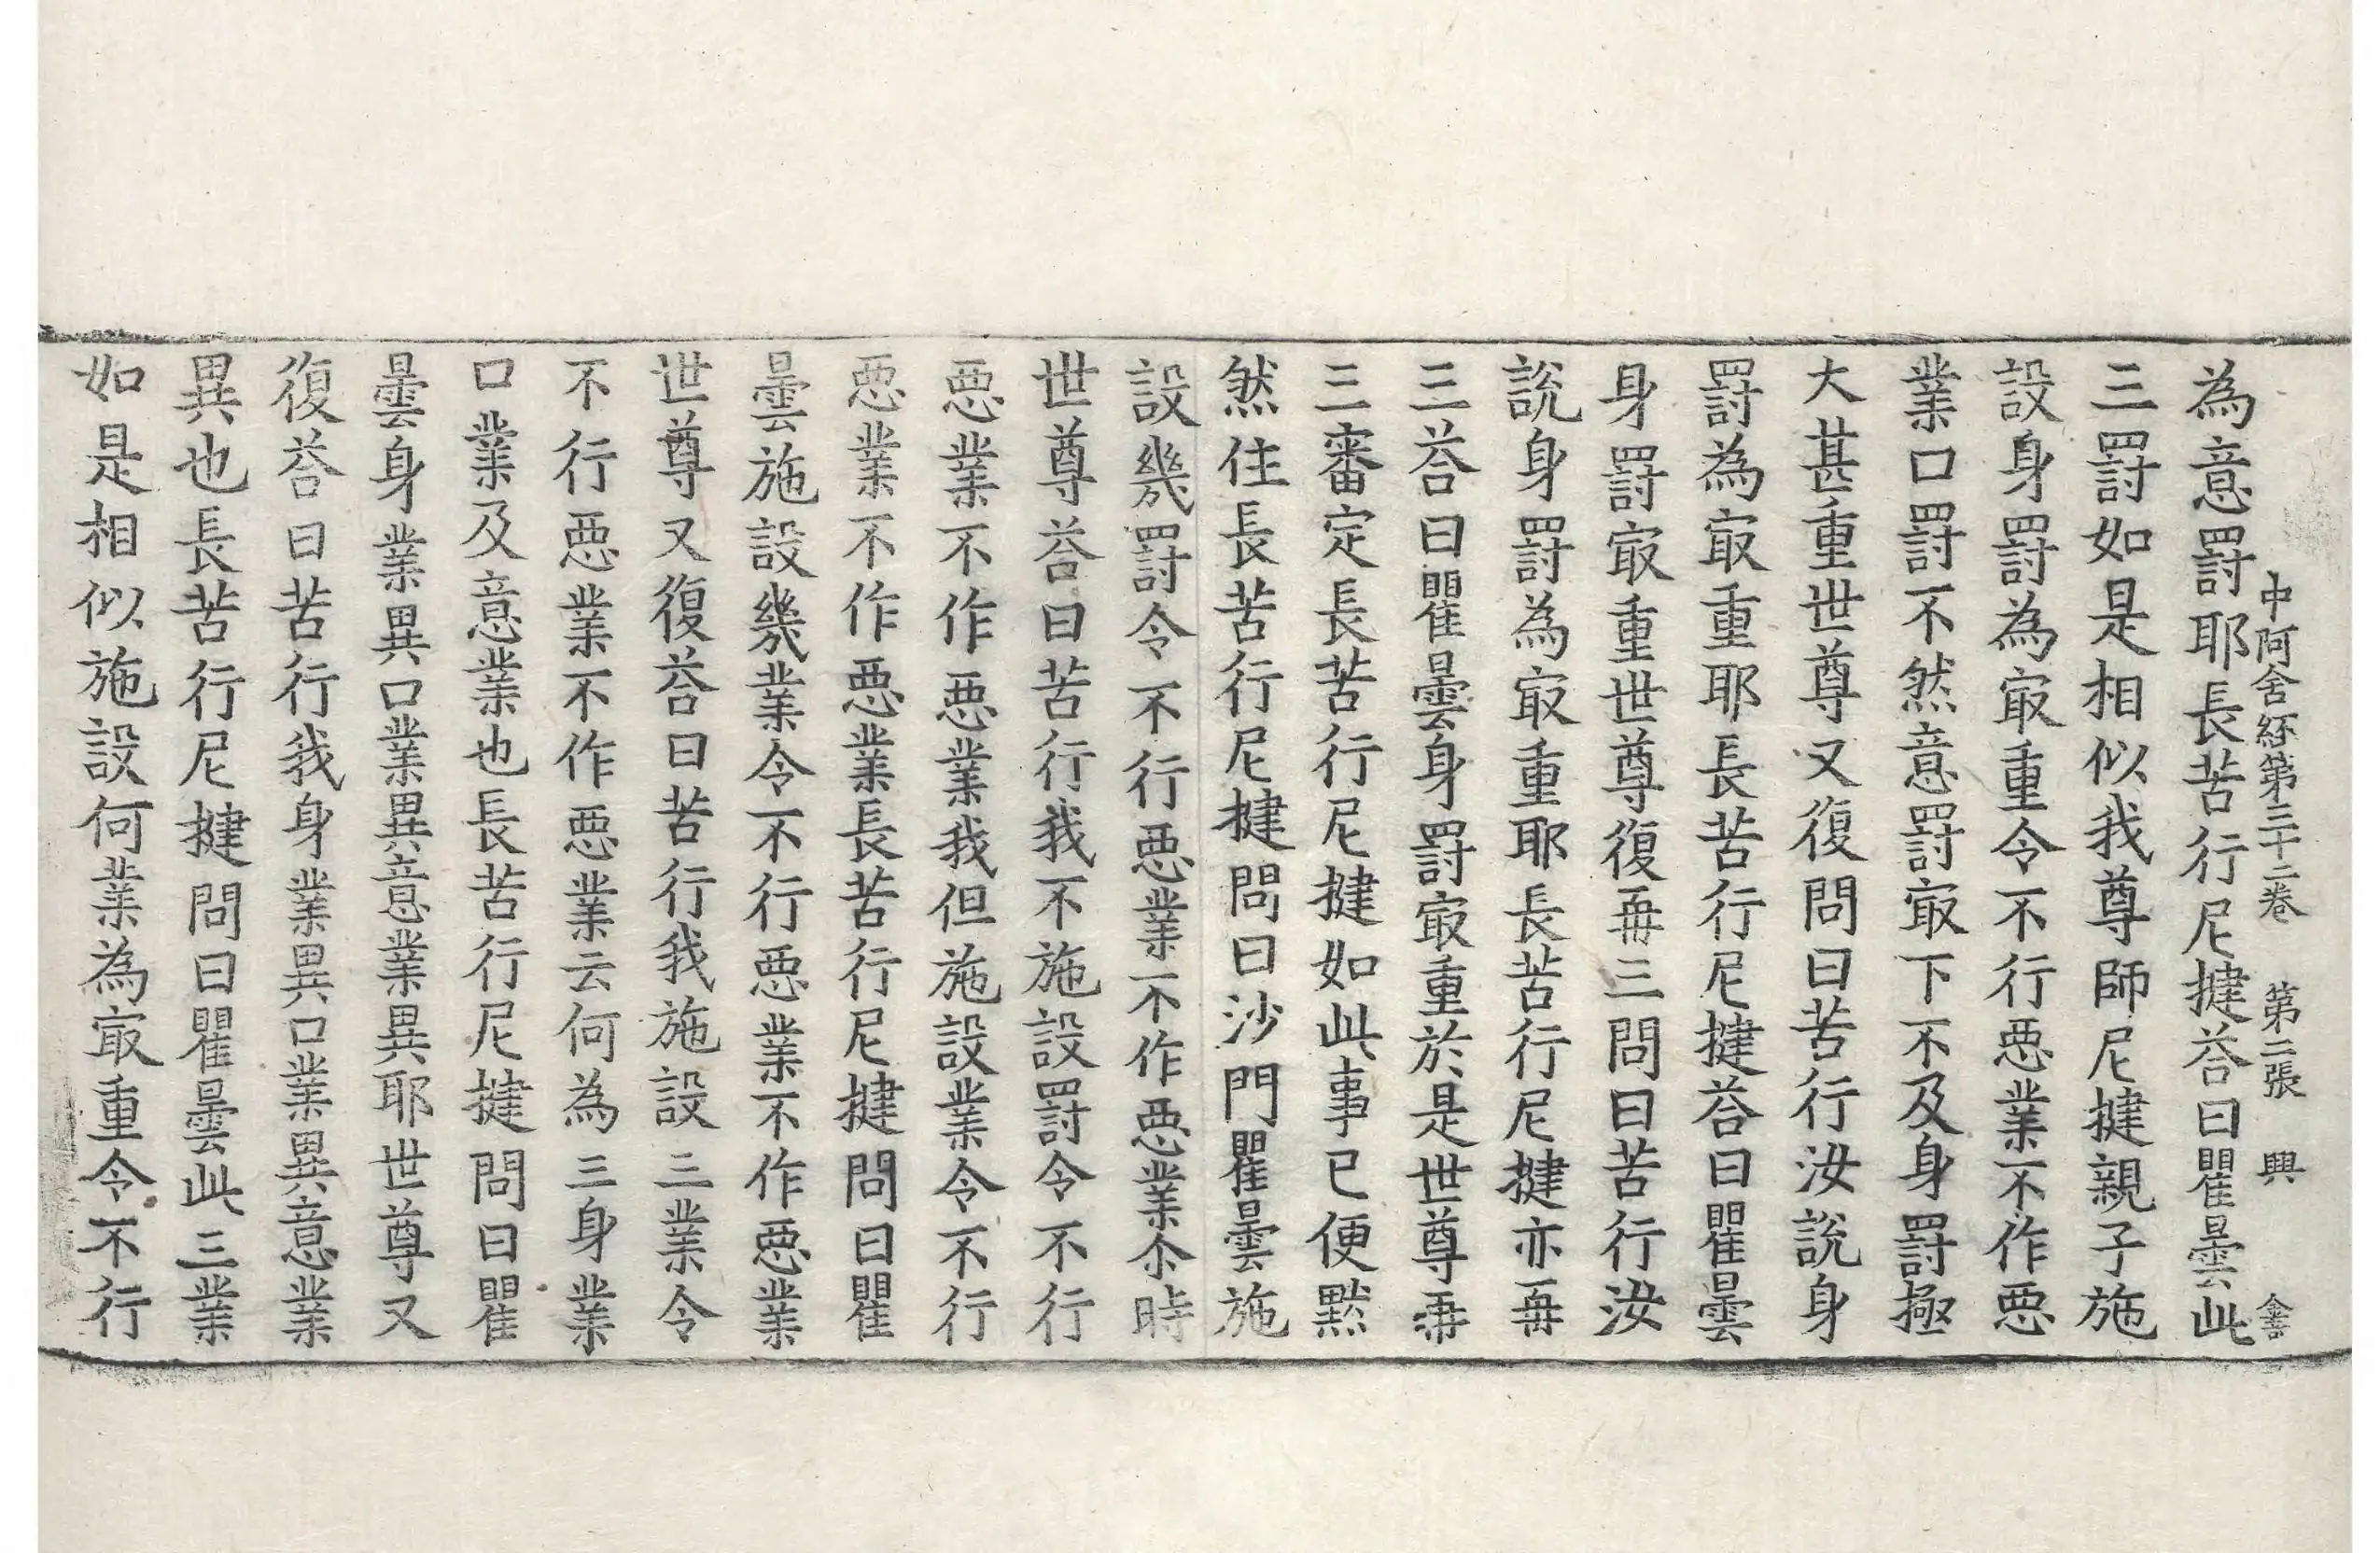 中阿含経第三十二卷 第二張 興
為意罸耶長苦行尼揵荅曰瞿曇此
三罸如是相似我尊師尼揵親子施
設身罸為㝡重令不行惡業不作惡
業口罸不然意罸㝡下不及身罸極
大甚重世尊又復問曰苦行汝說身
罸為㝡重耶長苦行尼揵荅曰瞿曇
身罸㝡重世尊復再三問曰苦行汝
說身罸為㝡重耶長苦行尼揵亦再
三荅曰瞿曇身罸㝡重於是世尊再
三審定長苦行尼揵如此事已便黙
然住長苦行尼揵問曰沙門瞿曇施
設幾罸令不行惡業不作惡業尒時
世尊荅曰苦行我不施設罸令不行
惡業不作惡業我但施設業令不行
惡業不作惡業長苦行尼揵問曰瞿
曇施設幾業令不行惡業不作惡業
世尊又復荅曰苦行我施設三業令
不行惡業不作惡業云何為三身業
口業及意業也長苦行尼揵問曰瞿
曇身業異口業異意業異耶世尊又
復荅曰苦行我身業異口業異意業
異也長苦行尼揵問曰瞿曇此三業
如是相似施設何業為㝡重令不行